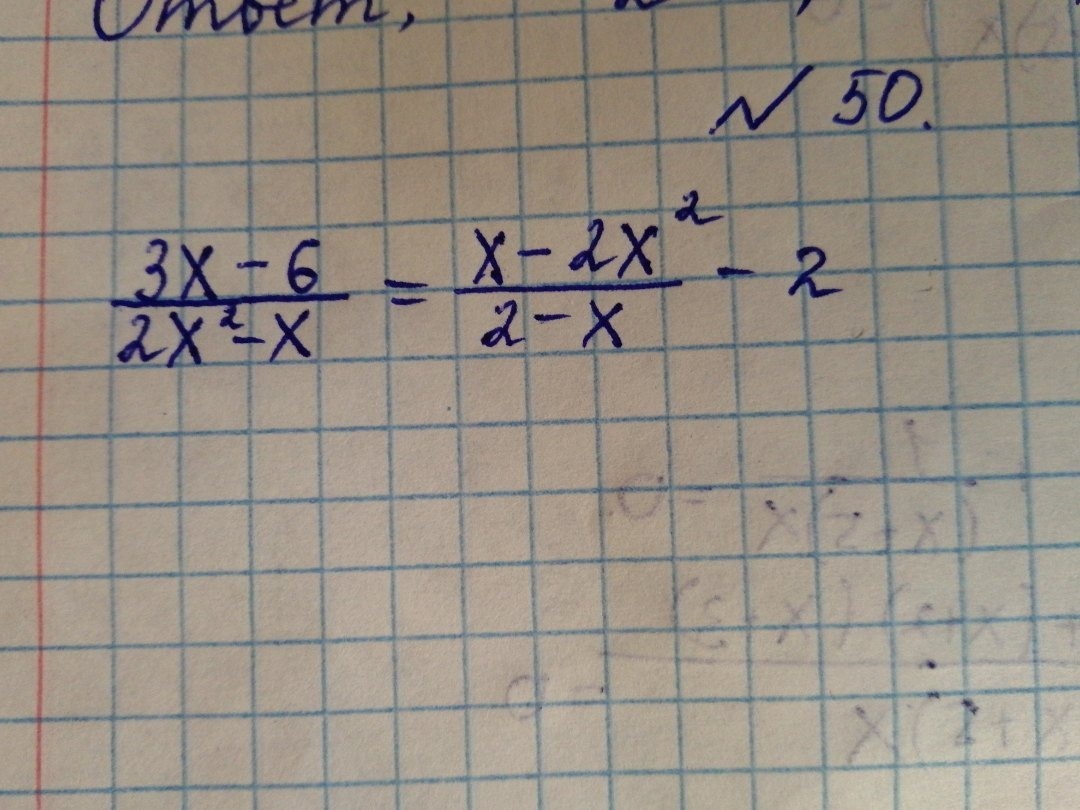 Ответ,
№ 50.
3x - 6 / 2x² - x = x - 2x² / 2 - x - 2